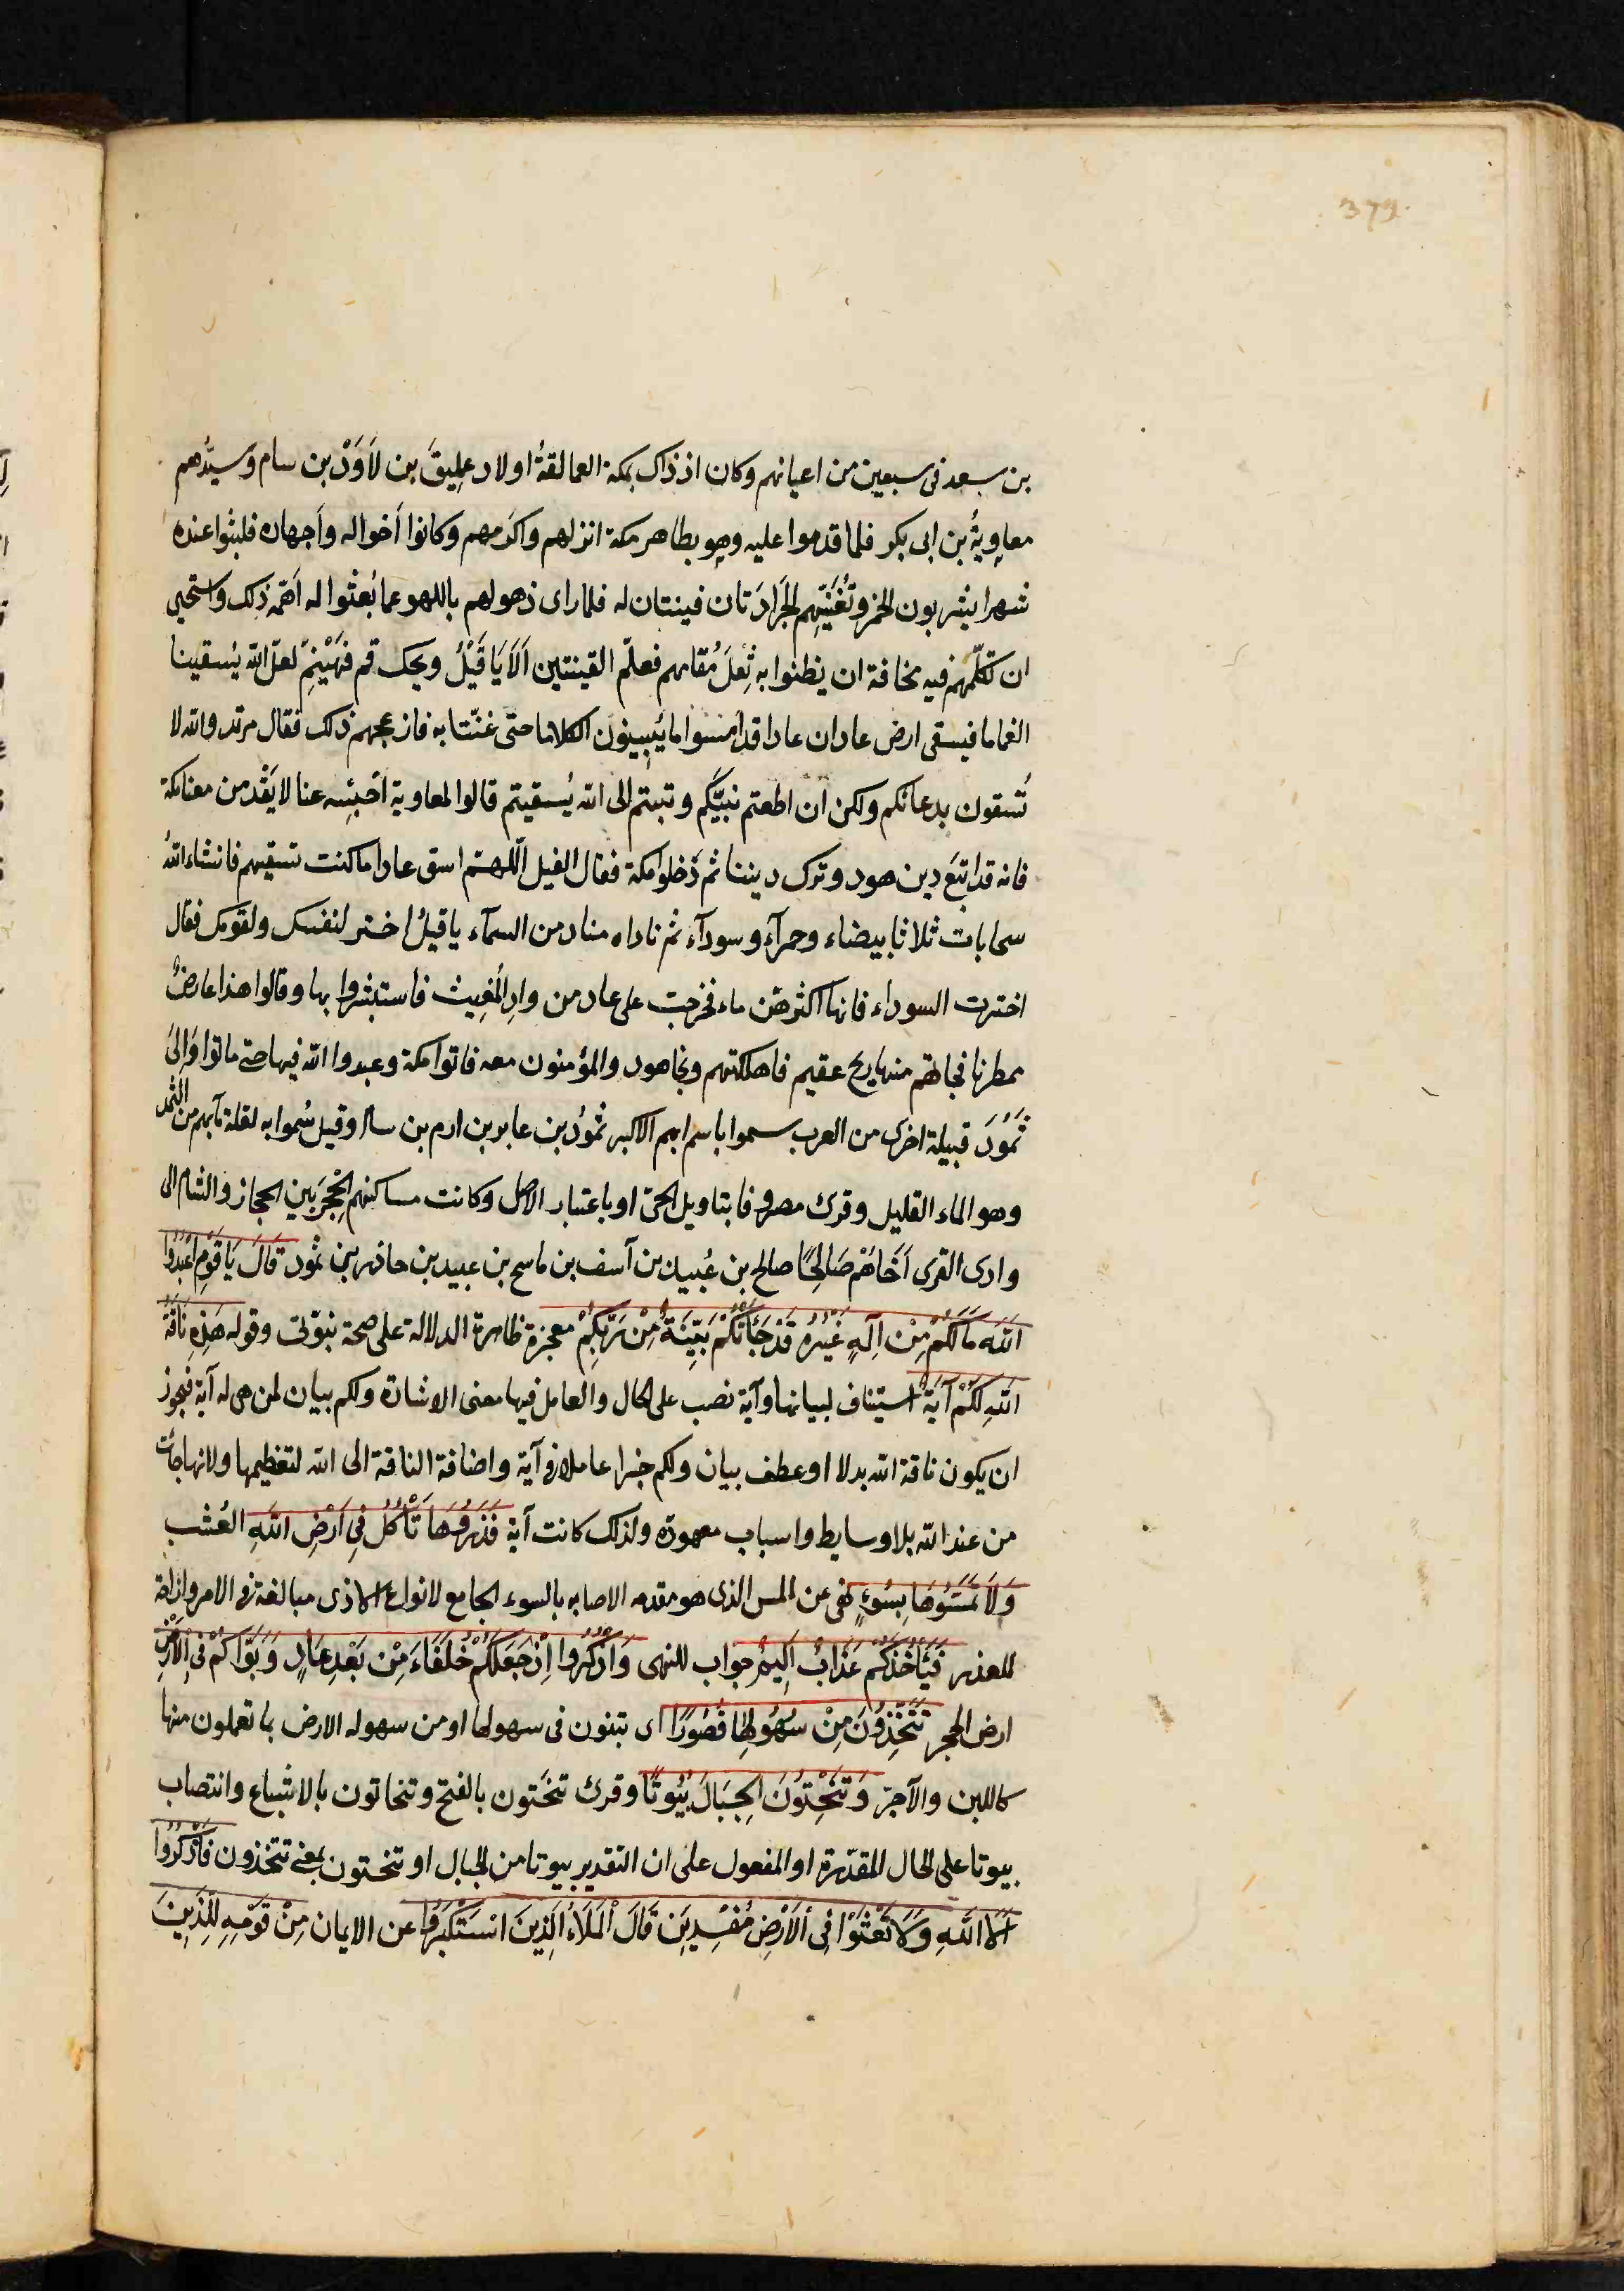 379
بن سعد فى سبعين من اعيانهم وكان اذ ذاك بمكة العمالقةُ اولاد عمليقَ بن لاَوَذْ بن سام وسيدهم
معاوِيةُ بن ابى بكر فلما قدموا عليه وهو بظاهر مكة انزلهم واكرمهم وكانوا اَخواله واَصهاره فلبثوا عنده
شهرا يشربون الخمر وتُغَنّيهم الجَرادَتان قينتان له فلما راى ذهولهم باللهو عما بُعثوا له اَهَمّه ذلك واستحيى
ان تكلّمهم فيه مخافة ان يظنوا به ثِقلَ مُقامهم فعلّم القينتين اَلاَ يَا قَيْلُ ويحك قم فهَيْنِمْ لعل الله يُسقينا
الغماما فيسقى ارض عاد ان عادا قد امسوا ما يُبِينُون الكلاما حتى غنّتا به فازعجهم ذلك فقال مرثد والله لا
تُسقون بدعائكم ولكن ان اطعتم نبيّكم وتبتم الى الله سُقيتم قالوا لمعاوية احبسه عنا لا يَقْدَمن معنا مكة
فانه قد اتبَع دين هود وترك ديننا ثم دَخلوا مكة فقال القيل اللهم اسق عادا ما كنت تسقيهم فانشاء اللهُ
سحابات ثلاثا بيضاء وحمرآء وسودآء ثم ناداه مناد من السمآء يا قيلُ اختر لنفسك ولقومك فقال
اخترت السوداء فانها اكثرهن ماء فخرجت على عاد من وادِ المُغِيث فاستبشروا بها وقالوا هذا عارضٌ
ممطرنا فجاءتهم منها ريح عقيم فاهلكتهم ونجا هود والمؤمنون معه فاتوا مكة وعبدوا الله فيها حتى ماتوا وَاِلىَ
ثَمُودَ قبيلة اخرى من العرب سموا باسم ابيهم الاكبر ثمودُ بن عابر بن ارم بن سام وقيل سُموا به لقلة مآئهم من الثمد
وهو الماء القليل وقرئ مصروفا بتاويل الحىّ او باعتبار الاصل وكانت مساكنهم الحِجْرَ بين الحجاز والشام الى
وادى القرى اَخَاهُمْ صَالِحًا صالح بن عُبيد بن آسف بن ماسح بن عبيد بن حاذر بن ثمود قَالَ يَا قَوْمِ اعْبُدُوا
اللَّهَ مَالَكُمْ مِنْ اِلَهٍ غَيْرُهُ قَدْ جَاءَتْكُمْ بَيِّنَةٌ مِنْ رَبِّكُمْ معجزة ظاهرة الدلالة على صحة نبوّتى وقوله هَذِهِ نَاقَةُ
اللَّهِ لَكُمْ آيَةً استيناف لبيانها وآية نصب على الحال والعامل فيها معنى الاشارة ولكم بيان لمن هى له آية فيجوز
ان يكون ناقة الله بدلا او عطف بيان ولكم خبرا عاملا فى آية واضافة الناقة الى الله لتعظيمها ولانها جاءت
من عند الله بلا وسايط واسباب معهودة ولذلك كانت آية فَذَرُوهَا تَأْكُلْ فِى اَرْضِ اللَّهِ العُشب
وَلاَ تَمَسُّوهَا بِسُوءٍ نهى عن المس الذى هو مقدمه الاصابه بالسوء الجامع لانواع الاذى مبالغة فى الامر وازاحة
للعذر فَيَأْخُذَكُمْ عَذَابٌ اَلِيمٌ جواب للنهى وَاذْكُرُوا اِذْ جَعَلَكُمْ خُلَفَاءَ مِنْ بَعْدِ عَادٍ وَبَوَّأَكُمْ فِى الاَرْضِ
ارض الحجر تَتَّخِذُونَ مِنْ سُهُولِهَا قُصُورًا اى تبنون فى سهولها او من سهوله الارض بما تعملون منها
كاللبن والآجرّ وَتَنْحِتُونَ الجِبَالَ بُيُوتًا وقرئ تنحَتون بالفتح وتنحاتون بالاشباع وانتصاب
بيوتا على الحال المقدّرة او المفعول على ان التقدير بيوتا من الجبال او تنحتون بمعنى تتخذون فَاذْكُرُوا
آلاَءَ اللَّهِ وَلاَ تَعْثَوْا فِى الاَرْضِ مُفْسِدِينَ قَالَ الْمَلَاُ الَّذِينَ اسْتَكْبَرُوا عن الايمان مِنْ قَوْمِهِ لِلَّذِينَ